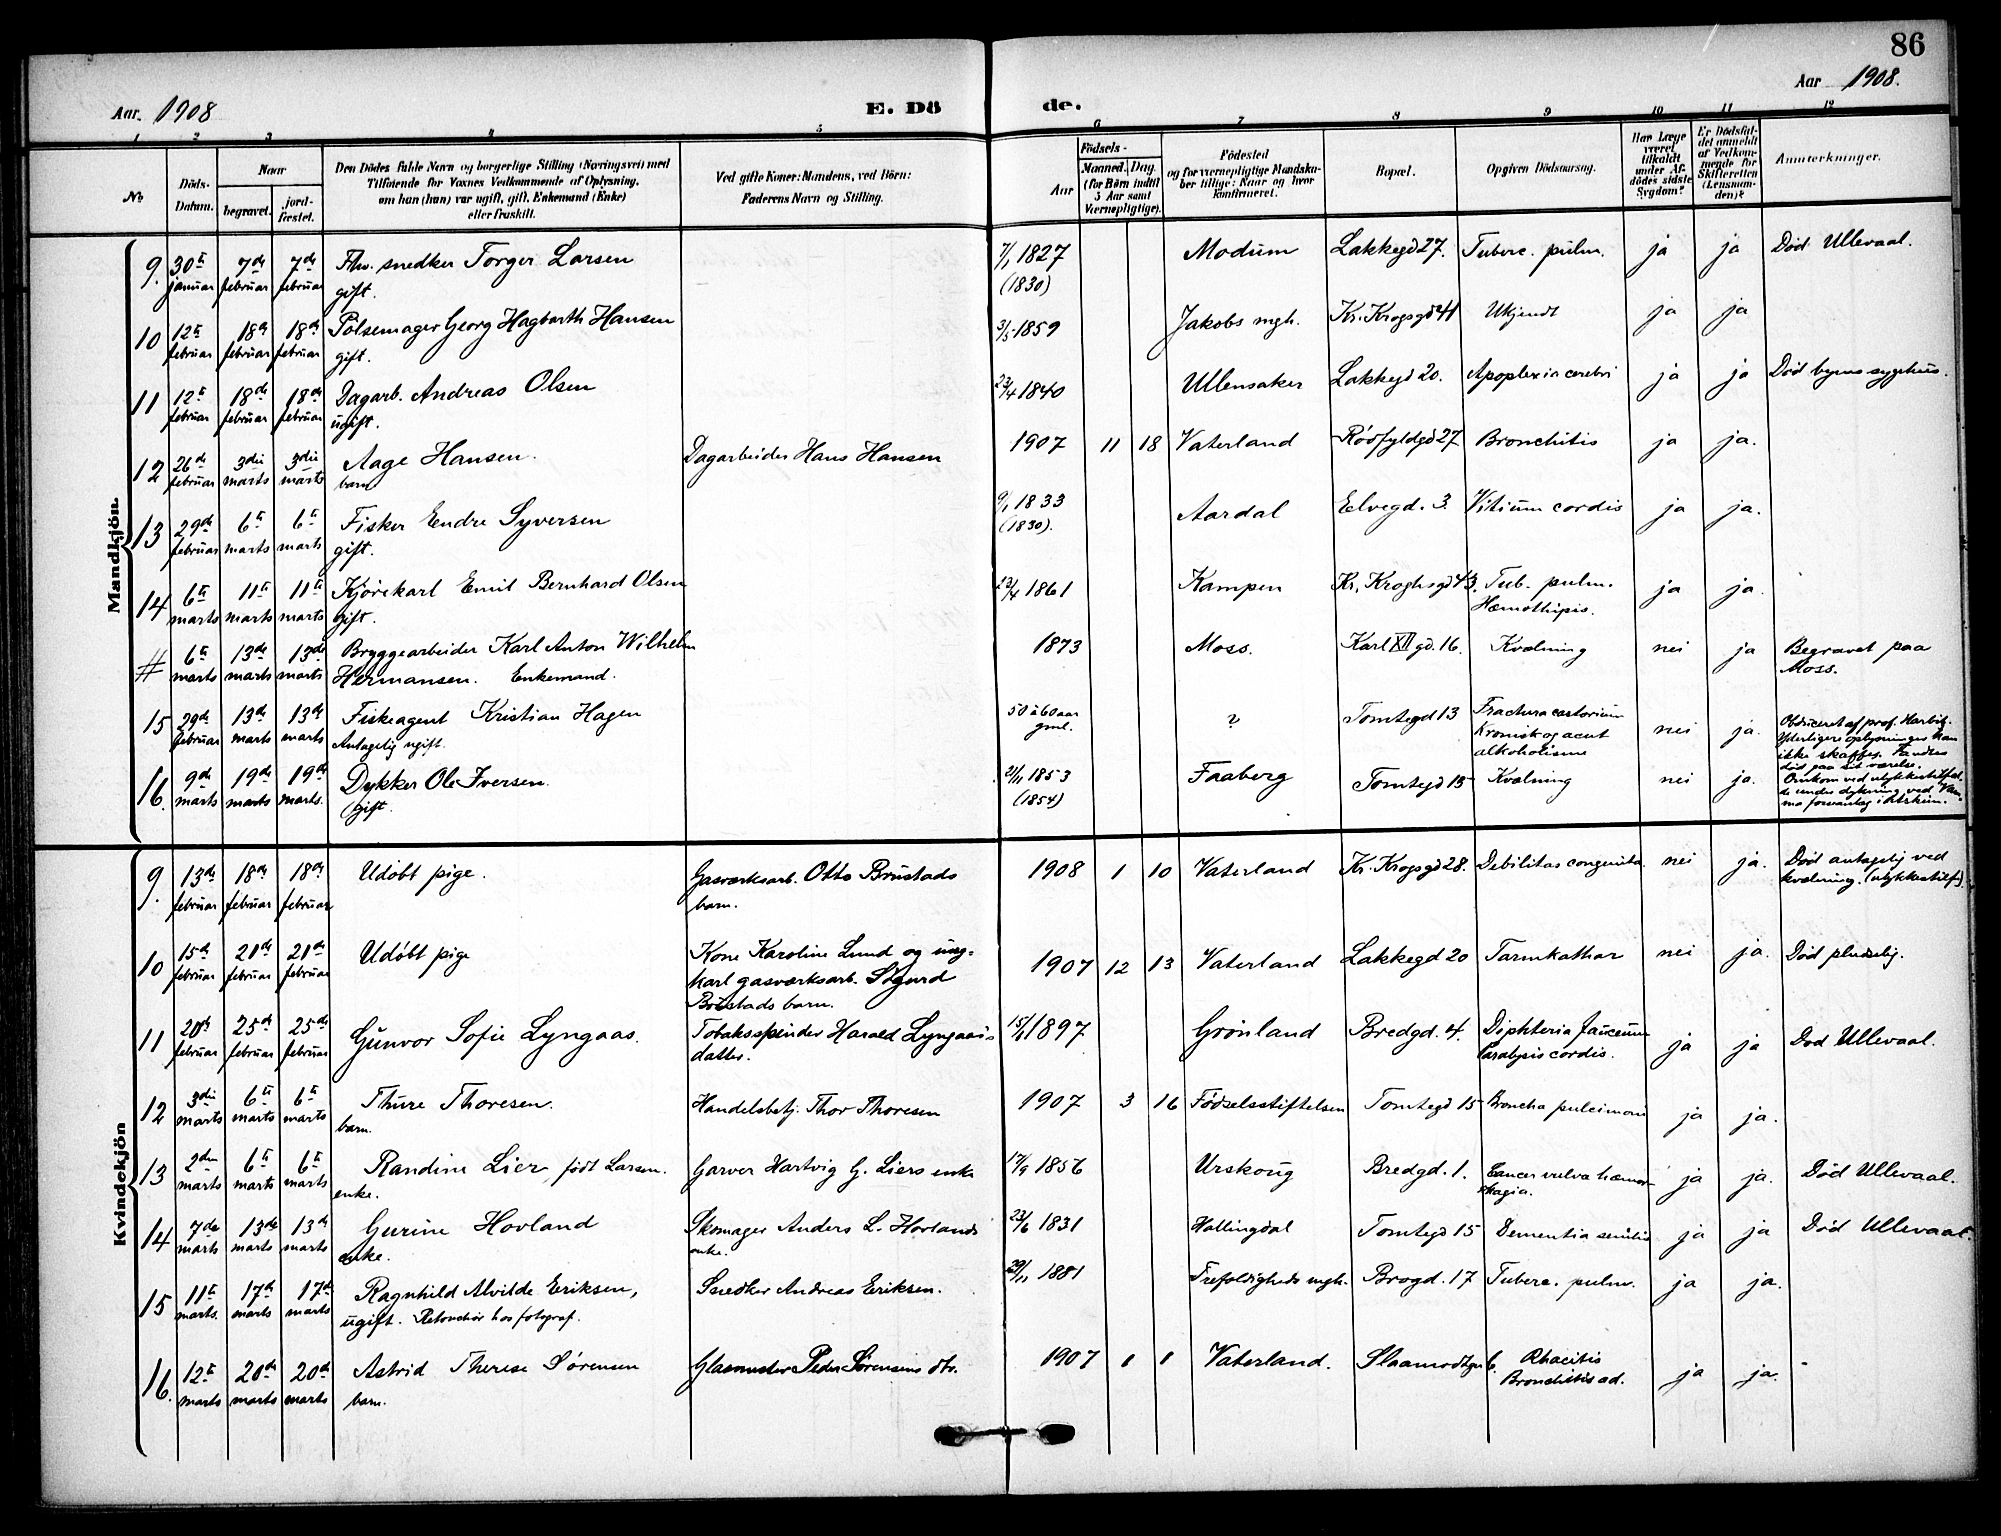 86
Aar 1908
E. Dö
de.
Aar 1908.
1 2 3 4 5 6 7 8 9 10 11 12
№
Döds-
Datum.
Naar
begravet.
jord-
fæstet.
Den Dödes fulde Navn og borgerlige Stilling (Næringsvei) med
Tilföiende for Voxnes Vedkommende af Oplysning,
om han (hun) var ugift, gift, Enkemand (Enke)
eller fraskilt.
Ved gifte Koner: Mandens, ved Börn:
Faderens Navn og Stilling.
Födsels-
Aar
Maaned. Dag.
(for Börn indtil
5 Aar samt
Værnepligtige).
Födested
og for værnepligtige Mandska-
ber tillige: Naar og hvor
konfirmeret.
Bopæl.
Opgiven Dödsaarsag.
Har Læge
været
tilkaldt
under Af-
dödes sidste
Sygdom?
Er Dödsfal-
det anmeldt
af Vedkom-
mende for
Skifteretten
(Lensman-
den)?
Anmerkninger.
Mandkjön.
9. 30te januar 7de februar 7de februar Fhv. snedker Torger Larsen gift. 7/1 1827 (1830) Modum Lakkegd 27. Tuberc. pulm. ja ja Død Ullevaal.
10 12te februar 18de februar 18de februar Pølsemager Georg Hagbarth Hansen gift. 3/5 1859 Jakobs mgh. Kr. Krogsgd 41 Ukjendt ja ja
11 12te februar 18de februar 18de februar Dagarb. Andreas Olsen ugift. 23/4 1840 Ullensaker Lakkegd 20. Apoplexia cerebri ja ja Død byens sygehus.
12 26de februar 3die marts 3die marts Aage Hansen. barn Dagarbeider Hans Hansen 1907 11 18 Vaterland Rødfyldgd 27 Bronchitis ja ja.
13 29de februar 6te marts 6te marts Fisker Endre Syversen gift. 9/1 1833 (1830). Aardal Elvegd. 3. Vitium cordis ja ja.
14 6te marts 11te marts 11te marts Kjørekarl Emil Bernhard Olsen gift. 23/4 1861 Kampen Kr. Kroghsgd 43. Tub. pulm. Hæmothipis. ja ja.
# 6te marts 13de marts 13de marts Bryggearbeider Karl Anton Wilhelm Hermansen. Enkemand. 1873 Moss. Karl XII gd. 16. Kvælning nei ja Begravet paa Moss.
15 29de februar 13de marts 13de marts Fiskeagent Kristian Hagen Antagelig ugift. 50 à 60 aar gml. ? Tomtegd 13 Fractura costorium Kronisk og acut alkoholisme nei ja. Obduceret af prof. Harbitz. Yterligere oplysninger kan ikke skaffes. Fandtes død paa sit værelse.
16. 9de marts 19de marts 19de marts. Dykker Ole Iversen. gift. 21/11 1853 (1854) Faaberg Tomtegd 15 Kvælning nei ja. Omkom ved ulykkestilfælde under dykning ved
Kvindekjön
9. 13de februar 18de februar 18de februar Udøbt pige. Gasværksarb. Otto Brustads barn. 1908 1 10 Vaterland Kr. Krogsgd 28. Debilitas congenita nei ja. Død antagelig ved kvælning. (ulykkestilf.)
10 15de februar 21de februar 21de februar Udøbt pige Kone Karoline Lund og ung-karl gasværksarb. Sigurd Brustads barn. 1907 12 13 Vaterland Lakkegd 20 Tarmkathar nei ja. Død pludselig.
11 20de februar 25de februar 25de februar Gunvor Sofie Lyngaas. Tobaksspinder Harald Lyngaas's datter. 1897 Grønland Bredgd. 4. Diphteria faucium Paralysis cordis. ja ja Død Ullevaal.
12 3die marts 6te marts 6te marts Thure Thoresen. barn. Handelsbetj. Thor Thoresen 1907 3 16 Fødselsstiftelsen Tomtegd 15 Broncha pulcimoni ja ja.
13 2den marts 6te marts 6te marts Randine Lier, født Larsen. enke. Garver Hartvig G. Liers enke 17/9 1856 Urskoug Bredgd. 1. Cancer vulva hæmorrhagia. ja ja. Død Ullevaal.
14 7de marts 13de marts 13de marts Gurine Hovland enke. Skomager Anders L. Hovlands enke. 23/6 1831 Hallingdal Tomtegd 15 Dementia senilis ja ja Død Ullevaal.
15 11te marts. 17de marts 17de marts Ragnhild Alvilde Eriksen, ugift. Retouchør hos fotograf. Snedker Andreas Eriksen. 29/11 1881 Trefoldigheds mgh. Brogd. 17 Tuberc. pulm. ja ja.
16. 12te marts 20de marts 20de marts Astrid Therese Sørensen barn. Glasmester Peder Sørensens dtr. 1907 1 1 Vaterland. Slaamodtgd 6. Rhacitis Bronchitis ad. ja ja.